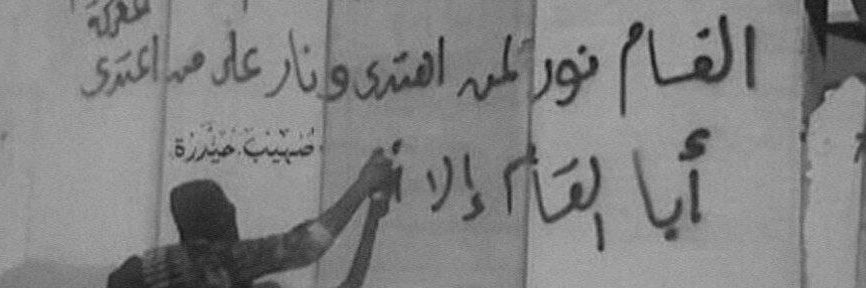 معركة
القسام نور لمن اهتدى ونار على من اعتدى
صُهَيْبْ حَيْدَرَة
أبا القسام إلا أ